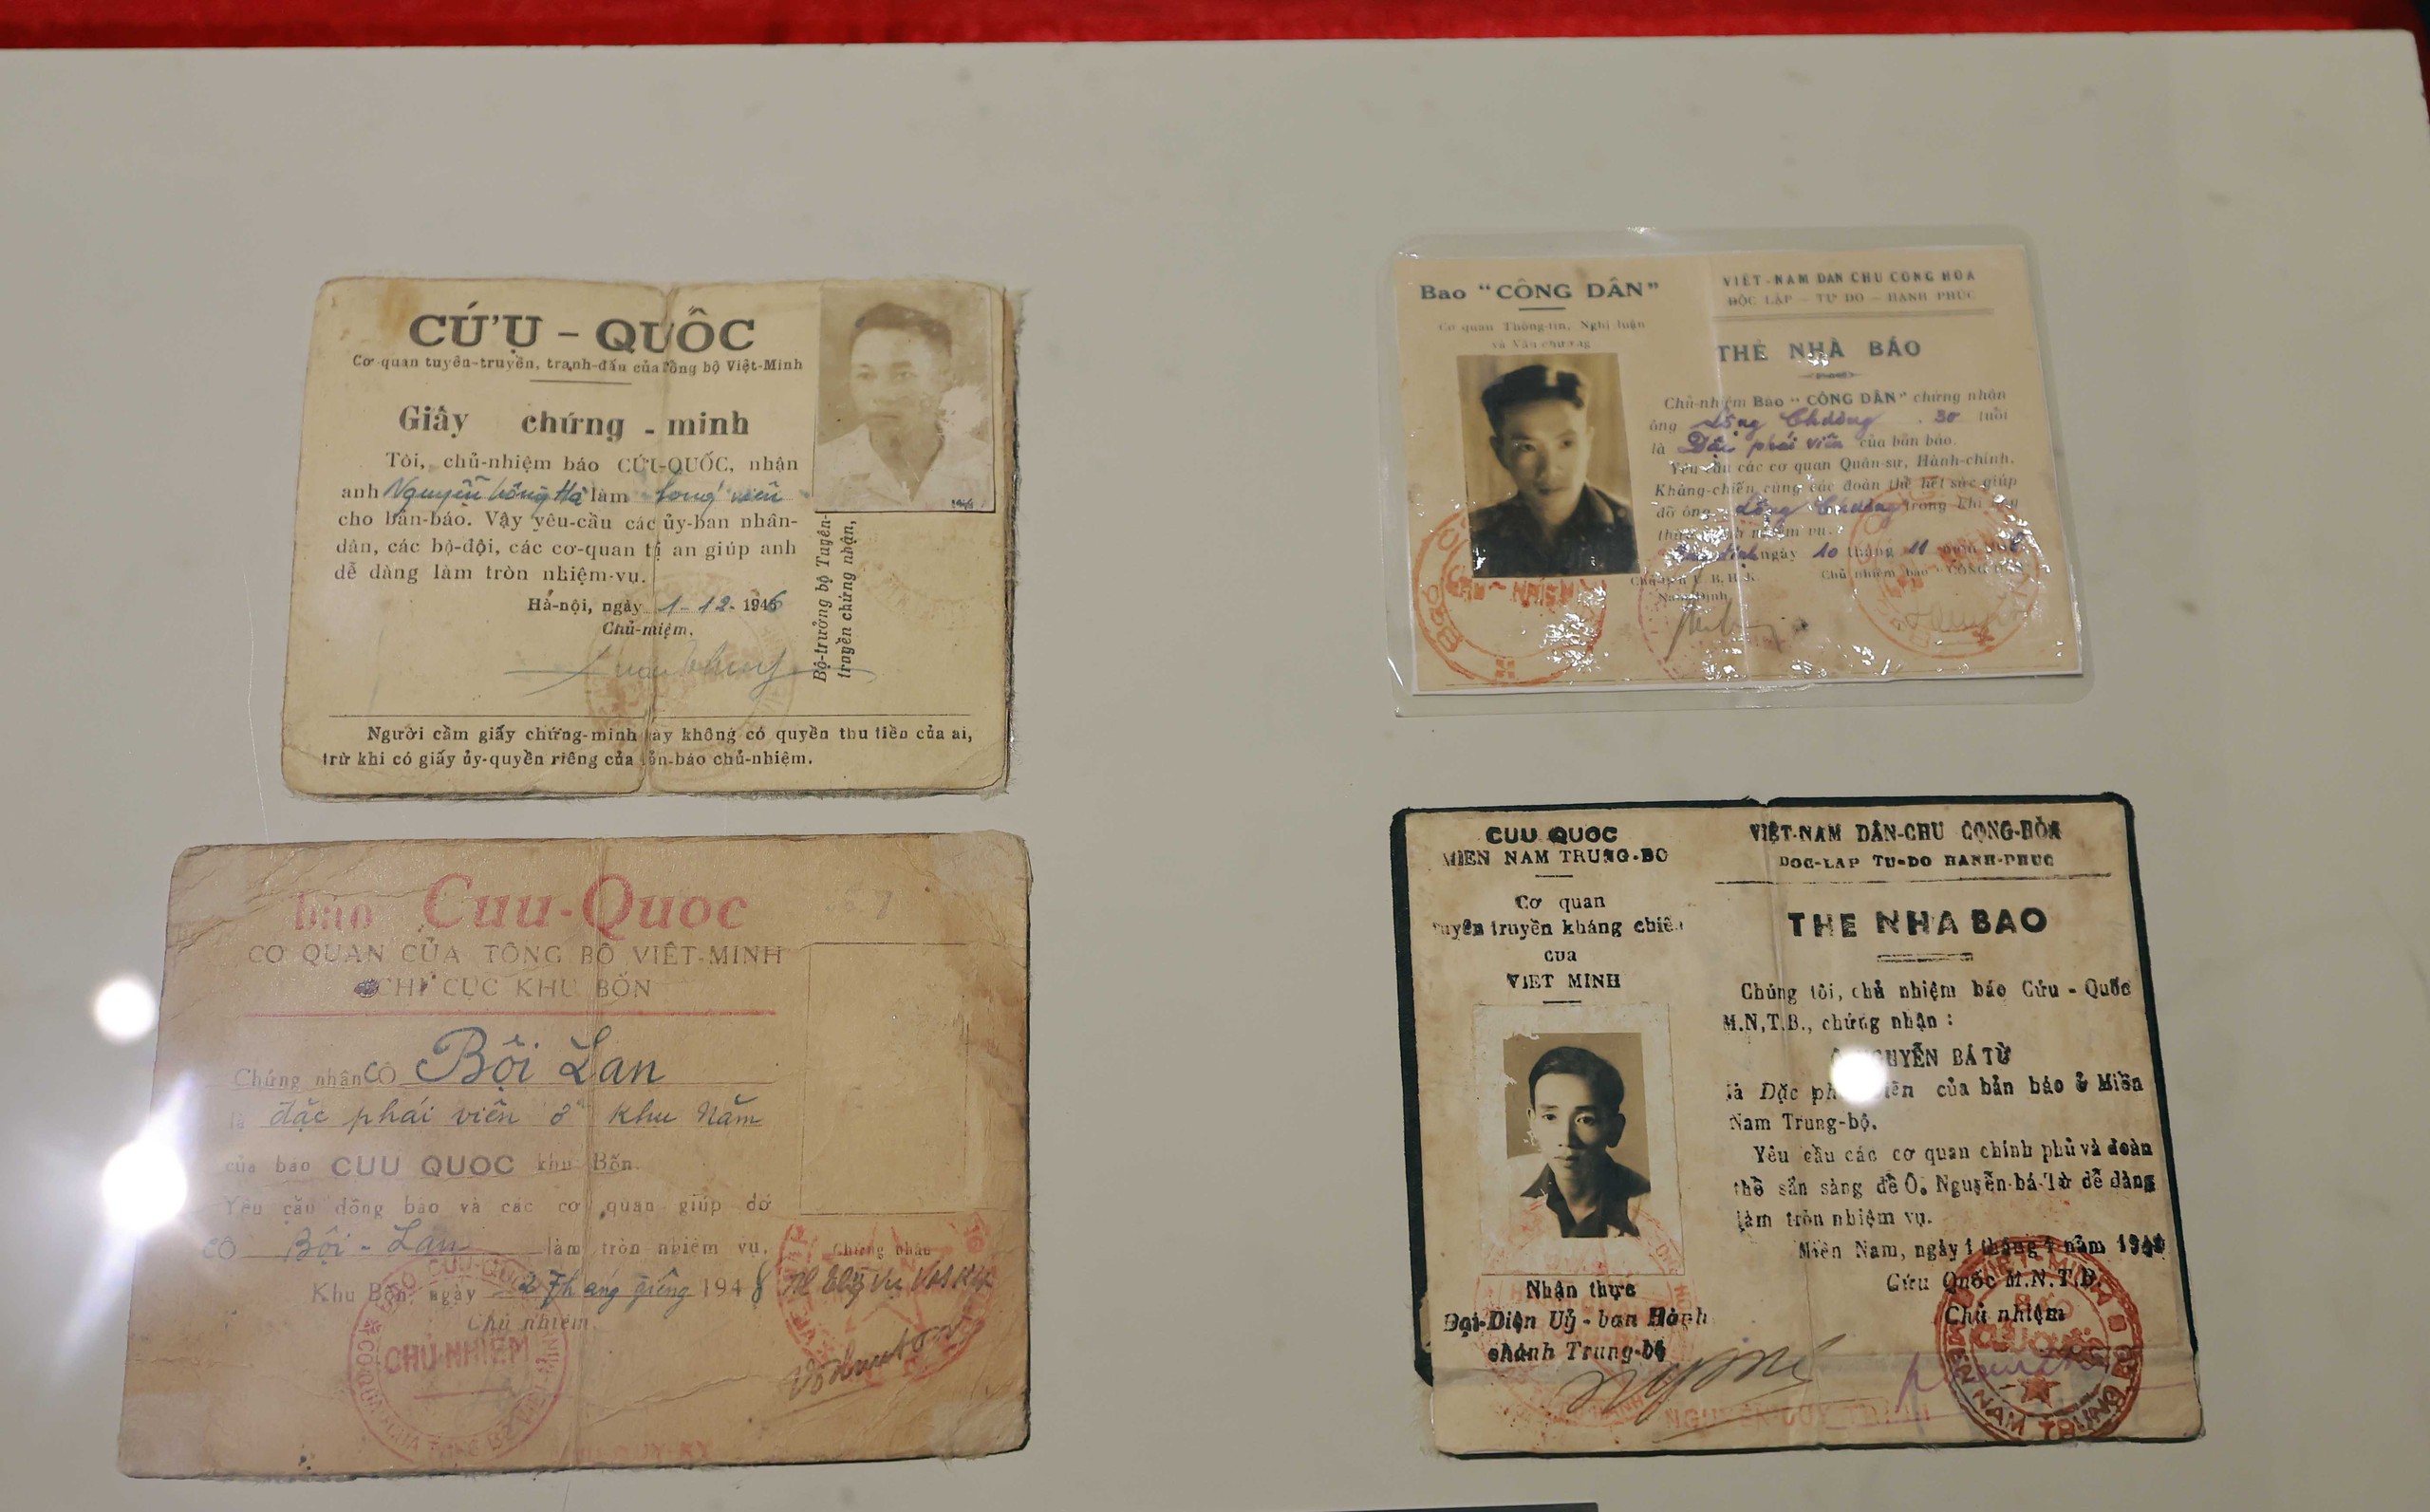 CỨU - QUỐC
Cơ quan tuyên-truyền, tranh-đấu của Tổng bộ Việt-Minh
Giấy chứng - minh
Tôi, chủ-nhiệm báo CỨU-QUỐC, nhận
anh Nguyễn Hồng Hà làm
cho bản-báo. Vậy yêu-cầu các ủy-ban nhân-
dân, các bộ-đội, các cơ-quan trị an giúp anh
dễ dàng làm tròn nhiệm-vụ.
Hà-nội, ngày 1-12-1946
Chủ-nhiệm,
Bộ-trưởng bộ Tuyên-
truyền chứng nhận,
Người cầm giấy chứng-minh này không có quyền thu tiền của ai,
trừ khi có giấy ủy-quyền riêng của bản-báo chủ-nhiệm.
Bao "CÔNG DÂN"
Cơ quan Thông-tin, Nghị luận
và Văn chương
VIỆT-NAM DAN CHU CONG HOA
ĐỘC LẬP - TỰ DO - HẠNH PHÚC
THẺ NHÀ BÁO
Chủ-nhiệm Báo "CÔNG DÂN" chứng nhận
ông Lộng Chương 30 tuổi
là Đặc phái viên của bản báo.
Yêu cầu các cơ quan Quân-sự, Hành-chính,
Kháng-chiến cùng các đoàn thể hết sức giúp
đỡ ông Lộng Chương trong khi ông
ngày 10 tháng 11
Chủ nhiệm báo "CÔNG DÂN"
Nam Định
bao Cuu-Quoc
7
CO QUAN CỦA TỔNG BỘ VIỆT-MINH
CHI CỤC KHU BỐN
Chứng nhận CÔ Bội Lan
là đặc phái viên ở Khu Năm
của báo CUU QUOC khu Bốn.
Yêu cầu đồng bào và các cơ quan giúp đỡ
CÔ Bội-Lan làm tròn nhiệm vụ.
Khu Bốn, ngày 2 Tháng giêng 1948
Chủ nhiệm.
CHỦ NHIỆM
Chứng nhận
CUU QUOC
MIEN NAM TRUNG-BO
Cơ quan
tuyên truyền kháng chiến
của
VIET MINH
Nhận thực
Đại-Diện Uỷ-ban Hành
chánh Trung-bộ
VIỆT-NAM DÂN-CHU CỘNG-HÒA
DOC-LAP TU-DO HANH-PHUC
THE NHA BAO
Chúng tôi, chủ nhiệm báo Cứu - Quốc
M.N,T.B., chứng nhận :
NGUYỄN BÁ TỪ
là Dặc phái viên của bản báo ở Miền
Nam Trung-bộ.
Yêu cầu các cơ quan chính phủ và đoàn
thể sẵn sàng để Ô. Nguyễn-bá-Từ dễ dàng
làm tròn nhiệm vụ.
Miền Nam, ngày 1 tháng
Cứu Quốc M.N.T.B.
Chủ nhiệm
NGUYEN DUY TRINH